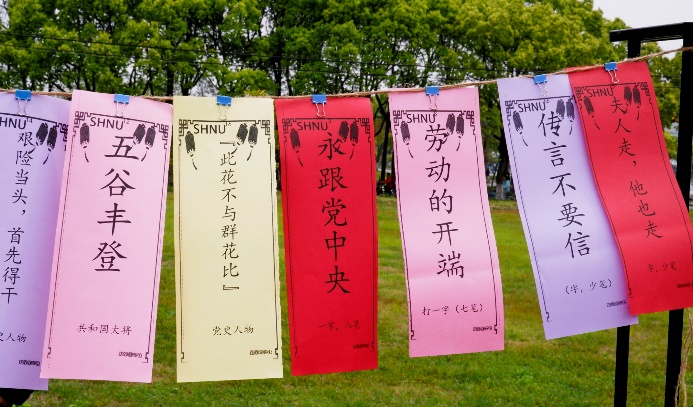 HNU
艰险当头，首先得干
史人物
SHNU
五谷丰登
共和国大将
SHNU
『此花不与群花比』
党史人物
SHNU
永跟党中央
一字，八笔
SHNU
劳动的开端
打一字（七笔）
SHNU
传言不要信
（字，少笔）
SHNU
夫人走，他也走
字，少笔